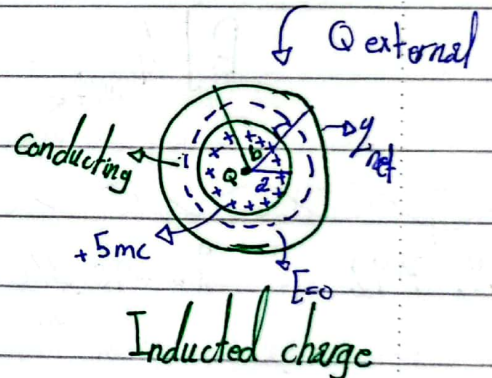 Q external
conducting
q net
b
Q
a
+5mc
E=0
Inducted charge